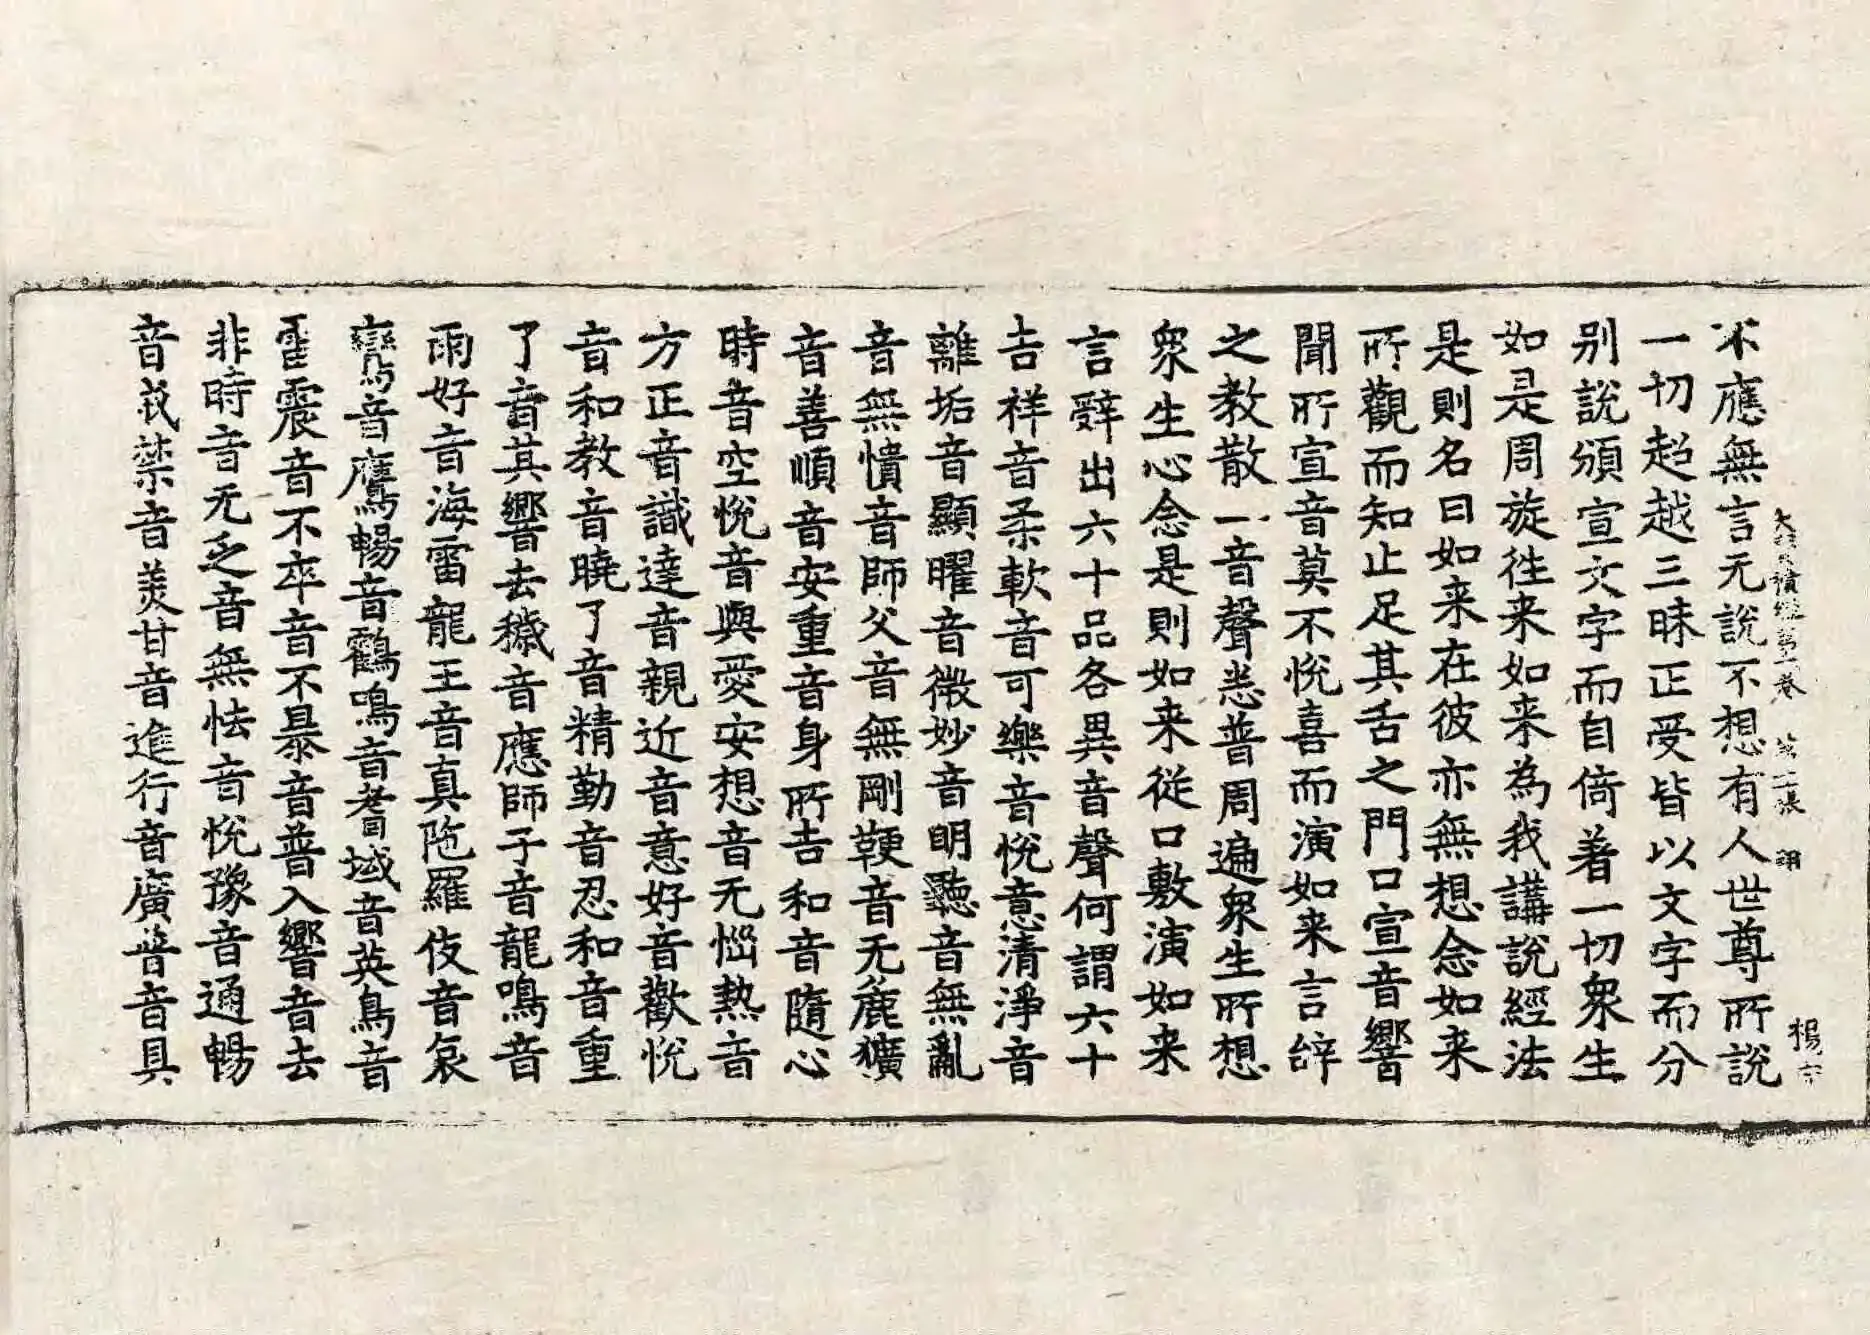 大寶積經第十卷 第二張 翔
楊
不應無言无說不想有人世尊所說
一切超越三昧正受皆以文字而分
别說頒宣文字而自倚着一切衆生
如是周旋徃来如来為我講說經法
是則名曰如来在彼亦無想念如来
所觀而知止足其舌之門口宣音響
聞所宣音莫不悅喜而演如来言辝
之教散一音聲悉普周遍衆生所想
衆生心念是則如来從口敷演如来
言辭出六十品各異音聲何謂六十
吉祥音柔軟音可樂音悅意清淨音
離垢音顯曜音微妙音明聽音無亂
音無憒音師父音無剛鞕音无麁獷
音善順音安重音身所吉和音隨心
時音空悅音與愛安想音无惱熱音
方正音識達音親近音意好音歡悅
音和教音曉了音精勤音忍和音重
了音其響去穢音應師子音龍鳴音
雨好音海雷龍王音真陁羅伎音哀
鸞音鷹暢音鶴鳴音耆域音英鳥音
雷震音不卒音不暴音普入響音去
非時音无乏音無怯音悅豫音通暢
音戒禁音羙甘音進行音廣普音具